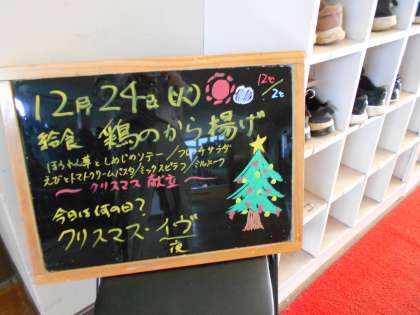 12月24日(火) 12℃/2℃
給食 鶏のから揚げ
ほうれん草としめじのソテー/フレンチサラダ
えびとトマトクリームパスタ/ミックスピラフ/ミルスープ
～クリスマス献立～
今日は何の日?
クリスマス・イヴ
夜